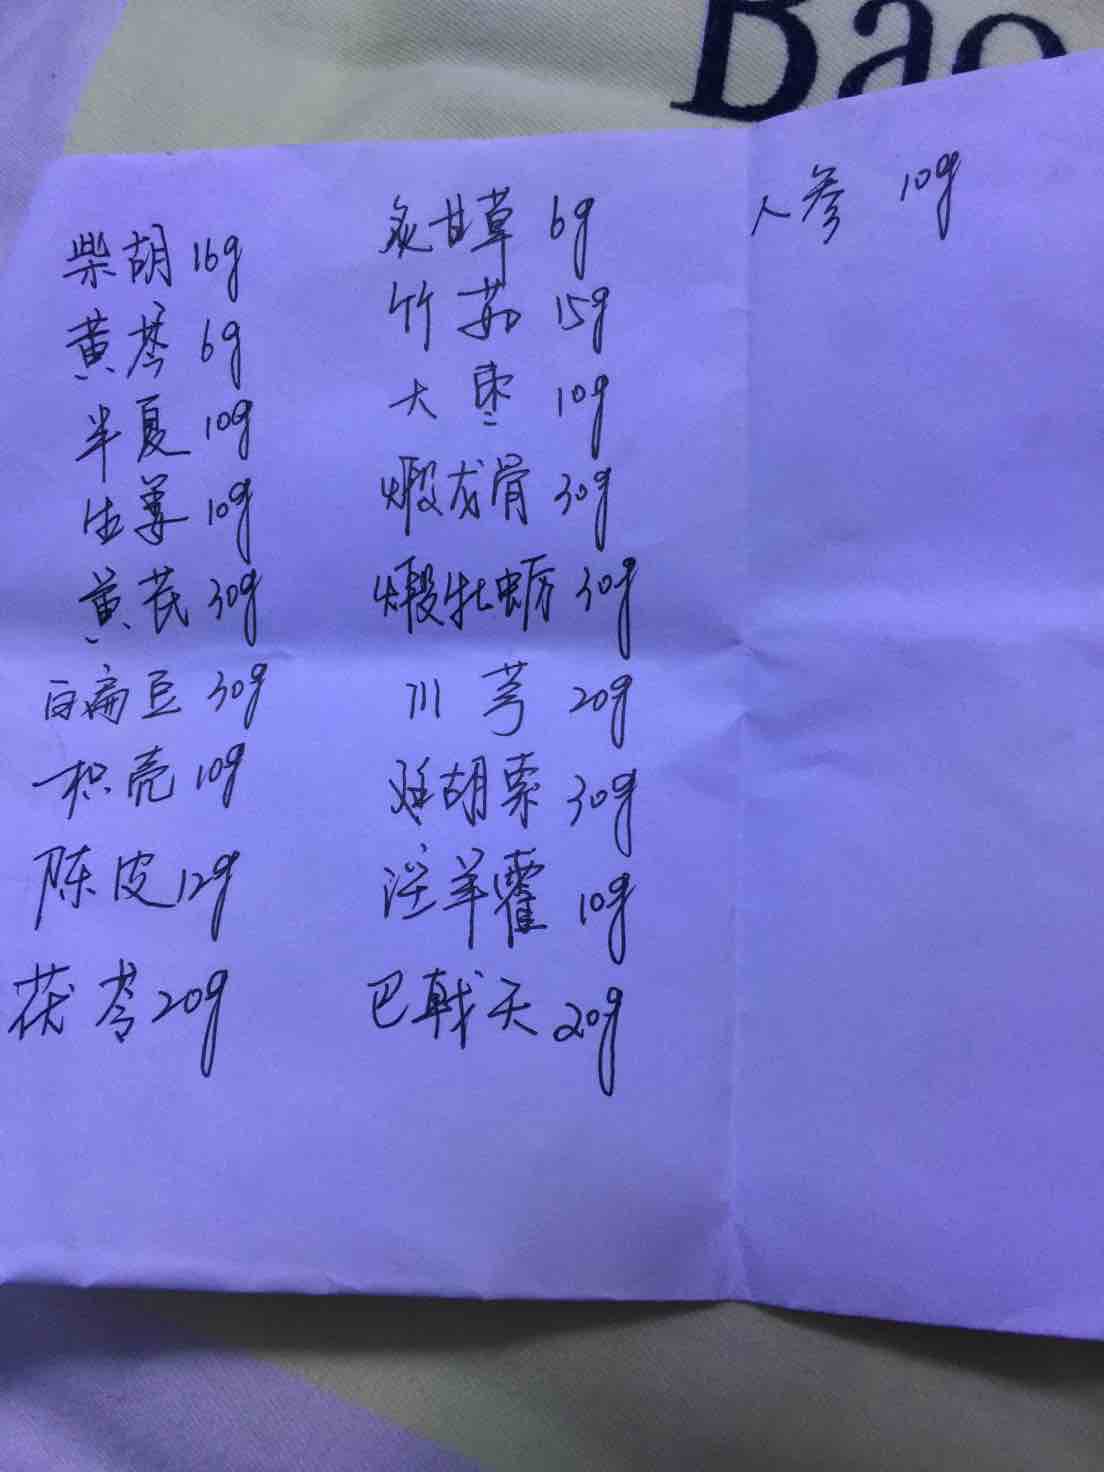 Bao
柴胡 16g
黄芩 6g
半夏 10g
生姜 10g
黄芪 30g
白扁豆 30g
枳壳 10g
陈皮 12g
茯苓 20g
炙甘草 6g
竹茹 15g
大枣 10g
煅龙骨 30g
煅牡蛎 30g
川芎 20g
延胡索 30g
淫羊藿 10g
巴戟天 20g
人参 10g